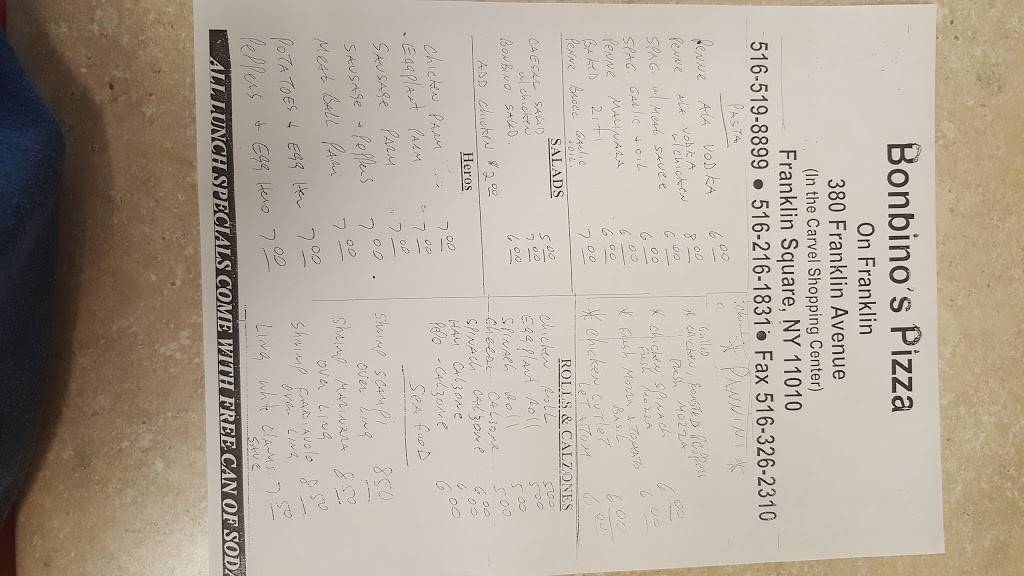 Bonbino's Pizza
On Franklin
380 Franklin Avenue
(In the Carvel Shopping Center)
Franklin Square, NY 11010
516-519-8899 • 516-216-1831 • Fax 516-326-2310
PASTA
Penne ALA VODKA 6.00
Penne ALA VODKA w/chicken 8.00
SPAG w/ meat sauce 6.00
SPAG Garlic + oil 6.00
Penne MARINARA 6.00
BAKED ZITI 6.00
Penne Broc Garlic oil 7.00
SALADS
CAESAR SALAD 5.00
w/chicken 7.00
Bonbino SALAD 6.00
ADD chicken $2.00
Heros
Chicken PARM 7.00
Eggplant PARM 7.00
SAUSAGE PARM 7.00
SAUSAGE + Peppers 7.00
Meat Ball Parm 7.00
POTATOES + Egg Hero 7.00
Peppers + Egg Hero 7.00
* PANNINI *
* chicken, roasted Peppers
Fresh Mozza 6.00
* chicken spinach
Fresh mozza 6.00
* Fresh Mozza + Tomato
Basil 6.00
* chicken cutlet
Let + Tom 6.00
ROLLS & CALZONES
chicken Roll 5.00
Eggplant Roll 5.00
Spinach Roll 5.00
cheese calzone 5.00
Spinach calzone 6.00
HAM calzone 6.00
Pepp - calzone 6.00
Sea food
Shrimp scampi
over Ling 8.50
Shrimp MARINARA
over Ling 8.50
Shrimp FraDiavolo
over Ling 8.50
Ling white clams
sauce 7.50
ALL LUNCH SPECIALS COME WITH FREE CAN OF SODA